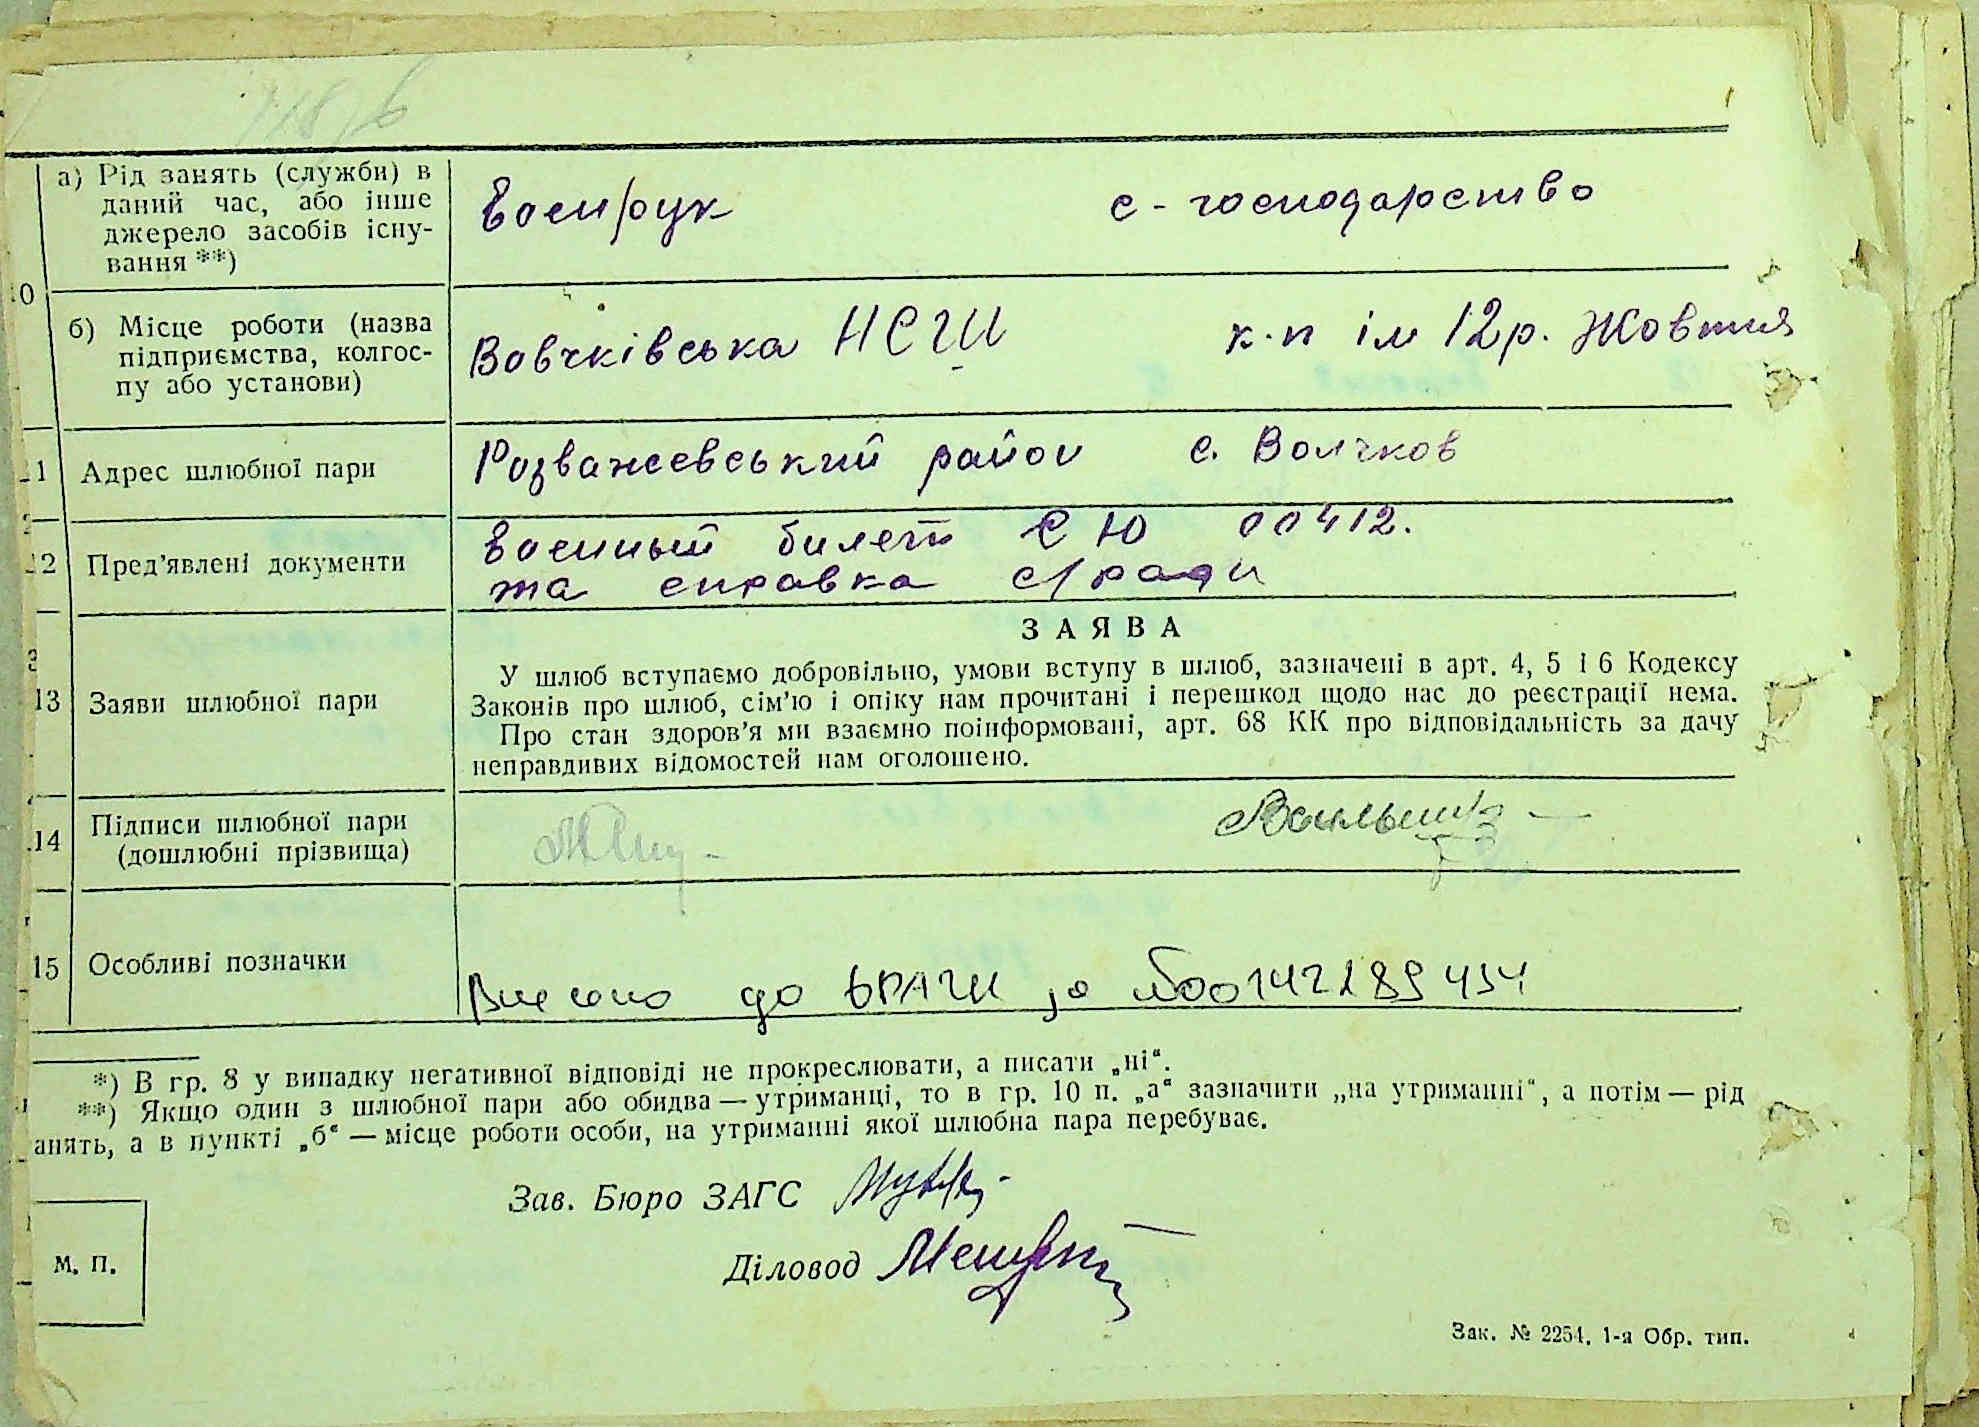 а) Рід занять (служби) в
даний час, або інше
джерело засобів існу-
вання **)
Воєнрук
с-господарство
10
б) Місце роботи (назва
підприємства, колгос-
пу або установи)
Вовчківська НСШ
к-п ім 12 р. Жовтня
11 Адрес шлюбної пари
Розважевський район с. Волчков
12 Пред’явлені документи
военный билет СЮ 00412.
та справка с/ради
13 Заяви шлюбної пари
ЗАЯВА
У шлюб вступаємо добровільно, умови вступу в шлюб, зазначені в арт. 4, 5 і 6 Кодексу
Законів про шлюб, сім’ю і опіку нам прочитані і перешкод щодо нас до реєстрації нема.
Про стан здоров’я ми взаємно поінформовані, арт. 68 КК про відповідальність за дачу
неправдивих відомостей нам оголошено.
14 Підписи шлюбної пари
(дошлюбні прізвища)
15 Особливі позначки
Внесено до ДРАЦС за №00147289454
*) В гр. 8 у випадку негативної відповіді не прокреслювати, а писати „ні“.
**) Якщо один з шлюбної пари або обидва — утриманці, то в гр. 10 п. „а“ зазначити „на утриманні“, а потім — рід
анять, а в пункті „б“ — місце роботи особи, на утриманні якої шлюбна пара перебуває.
Зав. Бюро ЗАГС
Діловод
М. П.
Зак. № 2254. 1-я Обр. тип.